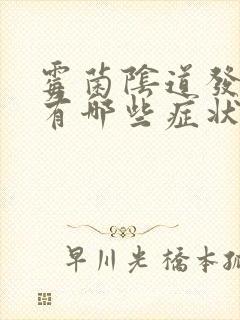 霉菌陰道發
有哪些症狀
早川光橋本孤